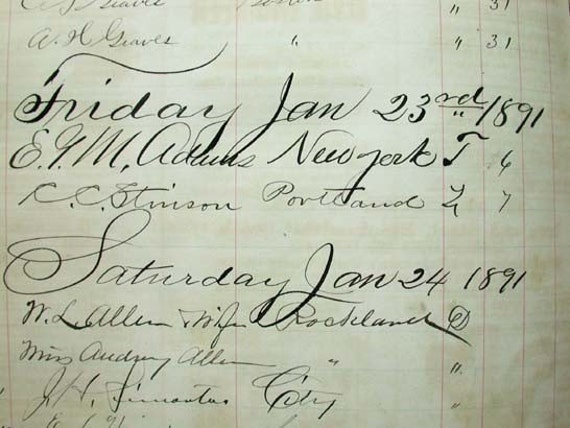 Graves Boston " 31
A. H. Graves " " 31
Friday Jan 23rd 1891
E. G. M. Adams New york T 6
R. C. Stinson Portland L 7
Saturday Jan 24 1891
W. L. Allen & Wife Rockland D
Miss Audrey Allen " "
J. H. Simonton City "